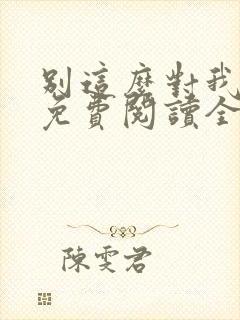 別這麼對我
免費閱讀全
陳雯君